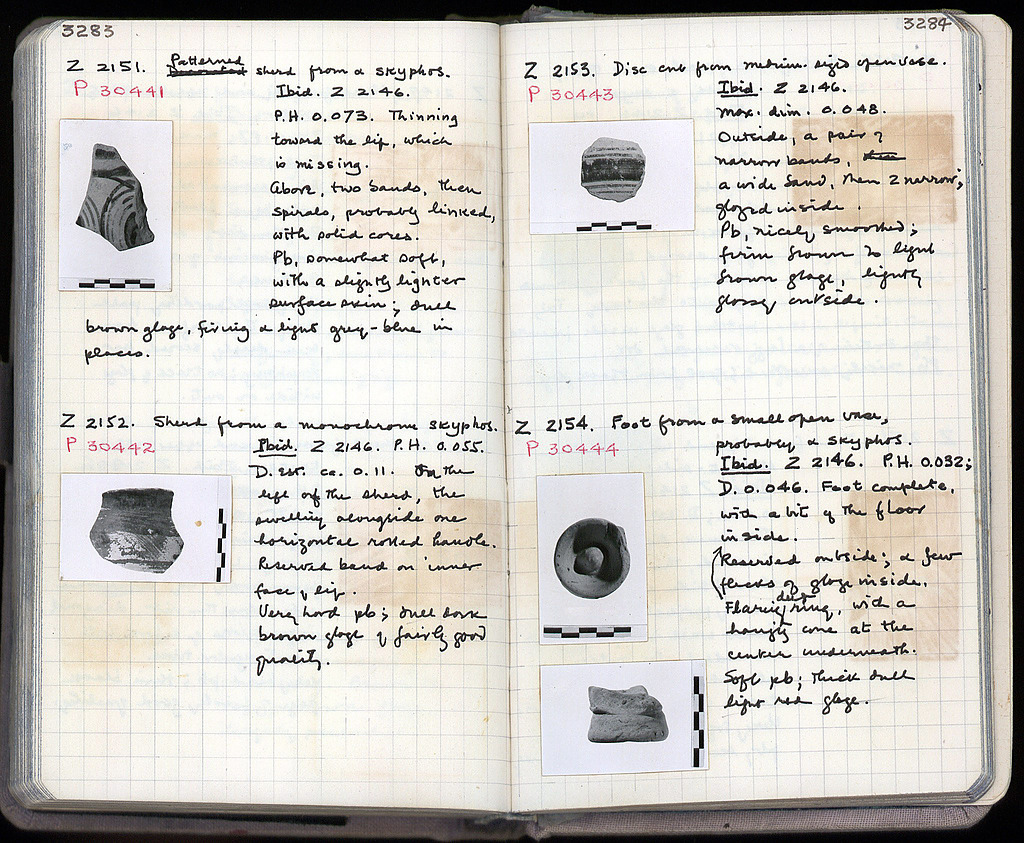 3283
Z 2151. Patterned sherd from a skyphos.
P 30441
Ibid. Z 2146.
P.H. 0.073. Thinning
toward the lip, which
is missing.
Above, two bands, then
spirals, probably linked,
with solid cores.
Pb, somewhat soft,
with a slightly lighter
surface skin; dull
brown glaze, firing a light grey-blue in
places.
Z 2152. Sherd from a monochrome skyphos.
P 30442
Ibid. Z 2146. P.H. 0.055.
D. est. ca. 0.11. On the
left of the sherd, the
swelling alongside one
horizontal rolled handle.
Reserved band on inner
face of lip.
Very hard pb; dull dark
brown glaze of fairly good
quality.
3284
Z 2153. Disc cut from medium-sized open vase.
P 30443
Ibid. Z 2146.
Max. dim. 0.048.
Outside, a pair of
narrow bands,
a wide band, then 2 narrow;
glazed inside.
Pb, nicely smoothed;
firm brown to light
brown glaze, lightly
glossy outside.
Z 2154. Foot from a small open vase,
probably a skyphos.
P 30444
Ibid. Z 2146. P.H. 0.032;
D. 0.046. Foot complete,
with a bit of the floor
inside.
Reserved outside; a few
flecks of glaze inside.
Flaring deep ring, with a
hanging cone at the
center underneath.
Soft pb; thick dull
light red glaze.